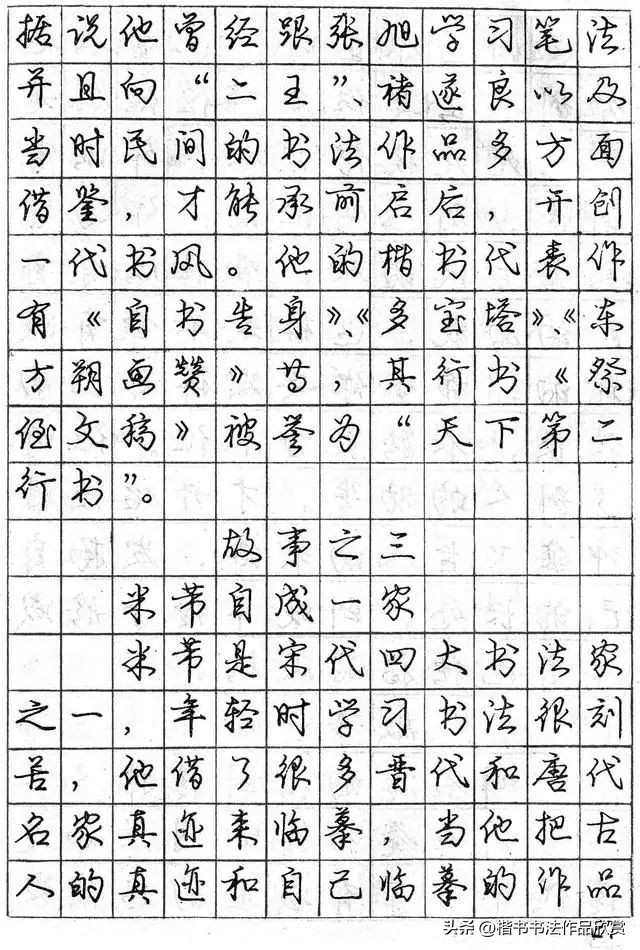 据说他曾经跟张旭学习笔法
并且向“二王”、褚遂良以及
当时民间的书法作品多方面
借鉴，才能承前启后，开创
一代书风。他的楷书代表作
有《自书告身》、《多宝塔》、《东
方朔画赞》等，其行书《祭
侄文稿》被誉为“天下第二
行书”。
故事之三
米芾自成一家
米芾是宋代四大书法家
之一，年轻时学习书法很刻
苦，他借了很多晋代和唐代
名家真迹来临摹，当他把古
人的真迹和自己临摹的作品
头条 @楷书书法作品欣赏